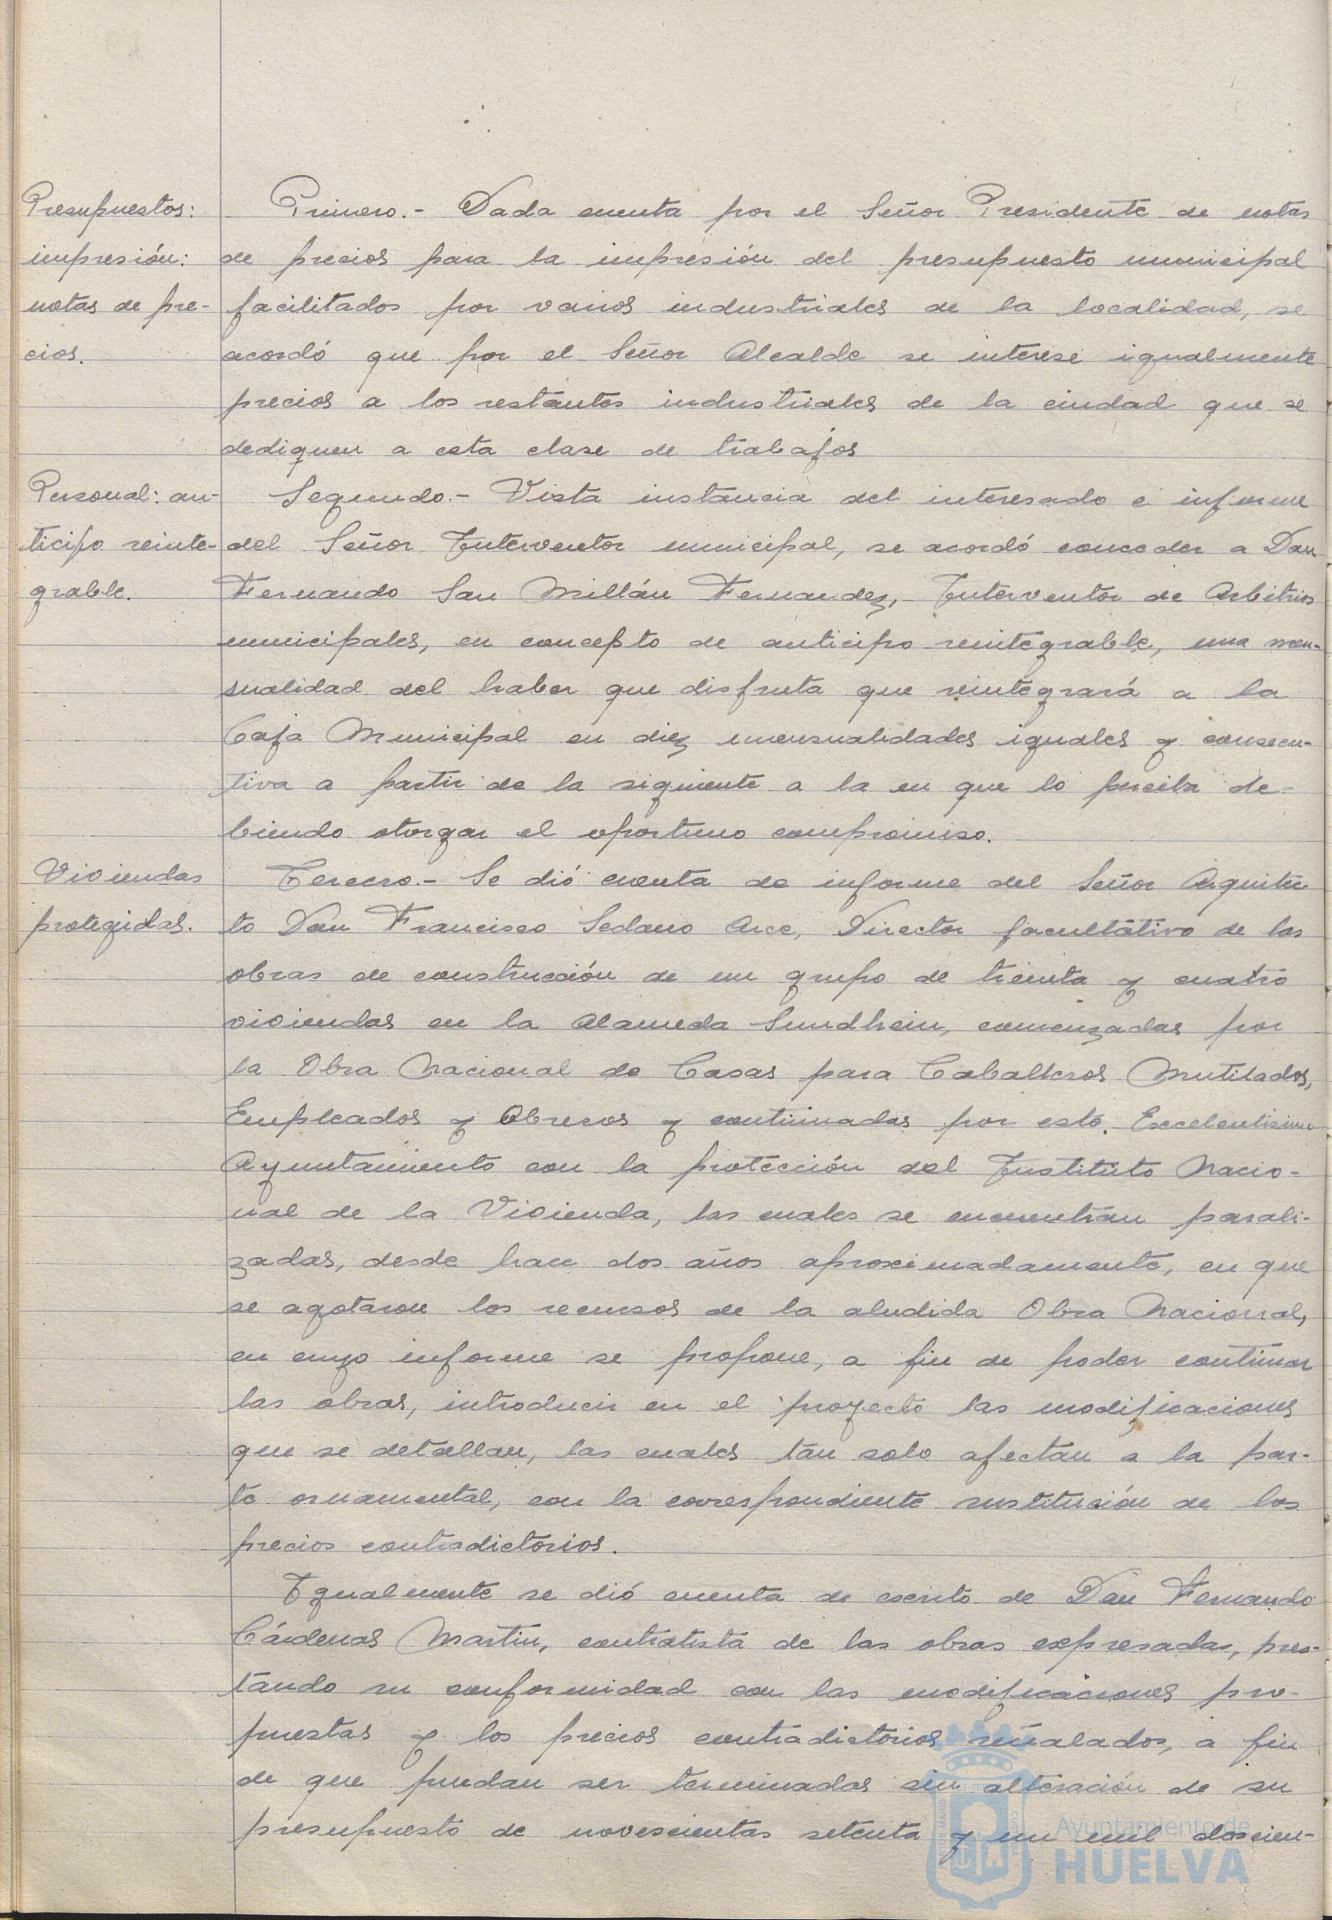 Presupuestos:
impresión:
notas de pre-
cios.
Primero.- Dada cuenta por el Señor Presidente de notas
de precios para la impresión del presupuesto municipal
facilitados por varios industriales de la localidad, se
acordó que por el Señor Alcalde se interese igualmente
precios a los restantes industriales de la ciudad que se
dediquen a esta clase de trabajos
Personal: an-
ticipo reinte-
grable.
Segundo.- Vista instancia del interesado e informe
del Señor Interventor municipal, se acordó conceder a Don
Fernando San Millán Fernandez, Interventor de Arbitrios
municipales, en concepto de anticipo reintegrable, una men-
sualidad del haber que disfruta que reintegrará a la
Caja Municipal en diez mensualidades iguales y consecu-
tiva a partir de la siguiente a la en que lo perciba de-
biendo otorgar el oportuno compromiso.
Viviendas
protegidas.
Tercero.- Se dió cuenta de informe del Señor Arquitec
to Don Francisco Sedano Arce, Director facultativo de las
obras de construcción de un grupo de treinta y cuatro
viviendas en la Alameda Sundhein, comenzadas por
la Obra Nacional de Casas para Caballeros Mutilados,
Empleados y Obreros y continuadas por este Excelentisimo
Ayuntamiento con la protección del Instituto Nacio-
nal de la Vivienda, las cuales se encuentran parali-
zadas, desde hace dos años aproximadamente, en que
se agotaron los recursos de la aludida Obra Nacional,
en cuyo informe se propone, a fin de poder continuar
las obras, introducir en el proyecto las modificaciones
que se detallan, las cuales tan solo afectan a la par-
te ornamental, con la correspondiente sustitución de los
precios contradictorios.
Igualmente se dió cuenta de escrito de Don Fernando
Cárdenas Martin, contratista de las obras expresadas, pres-
tando su conformidad con las modificaciones pro-
puestas y los precios contradictorios señalados, a fin
de que puedan ser terminadas sin alteración de su
presupuesto de novescientas setenta y un mil doscien-
Ayuntamiento de
HUELVA